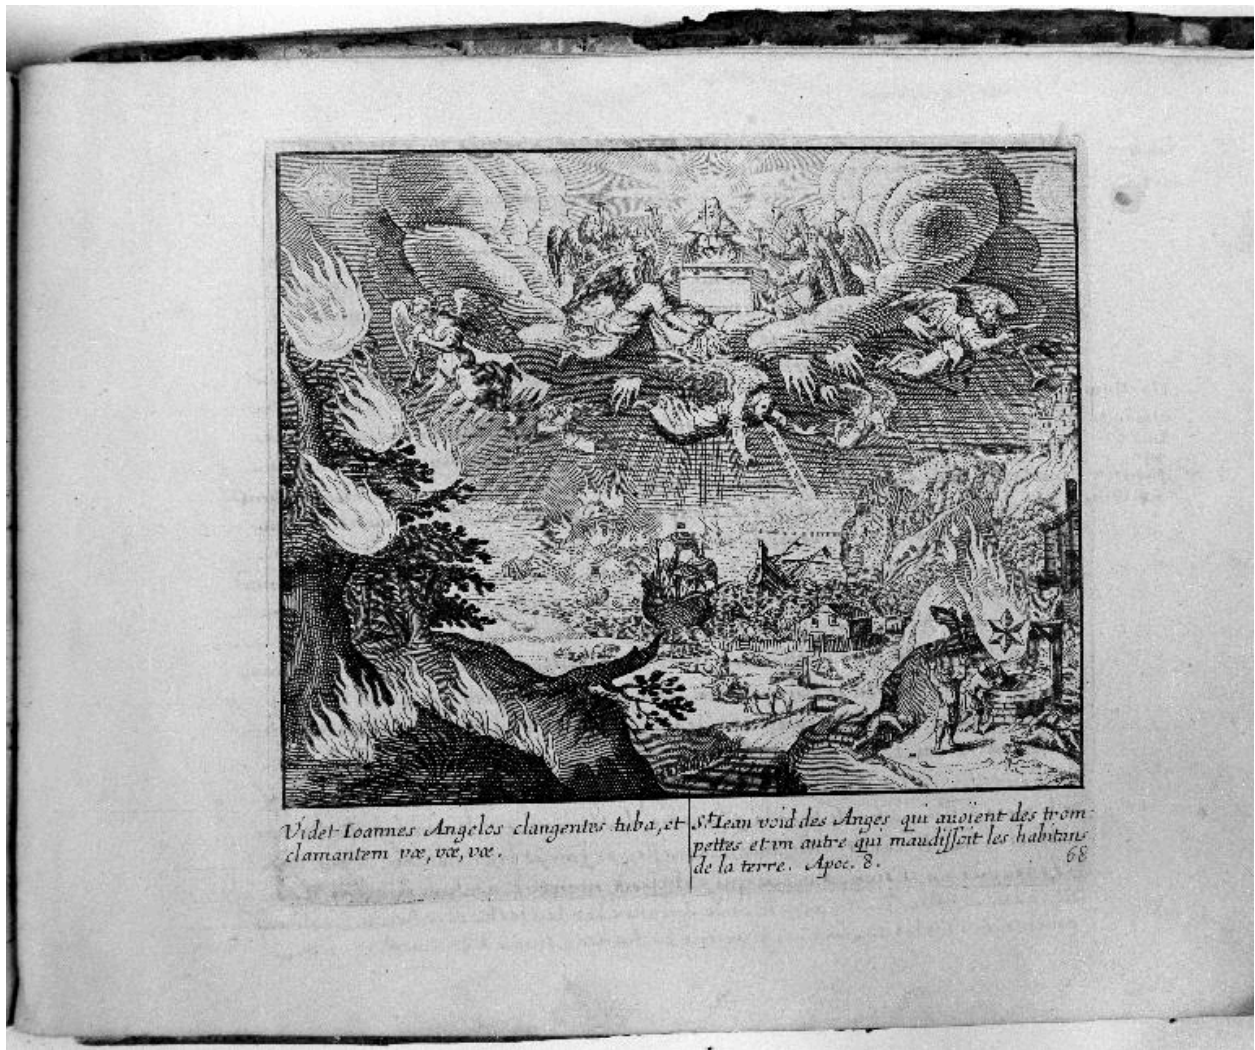 Videt Ioannes Angelos clangentes tuba, et
clamantem væ, væ, væ.
St. Iean void des Anges qui auoïent des trom-
pettes et vn autre qui maudissoit les habitans
de la terre. Apoc. 8.
68